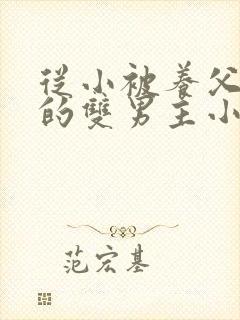 從小被養父
的雙男主小
范宏基